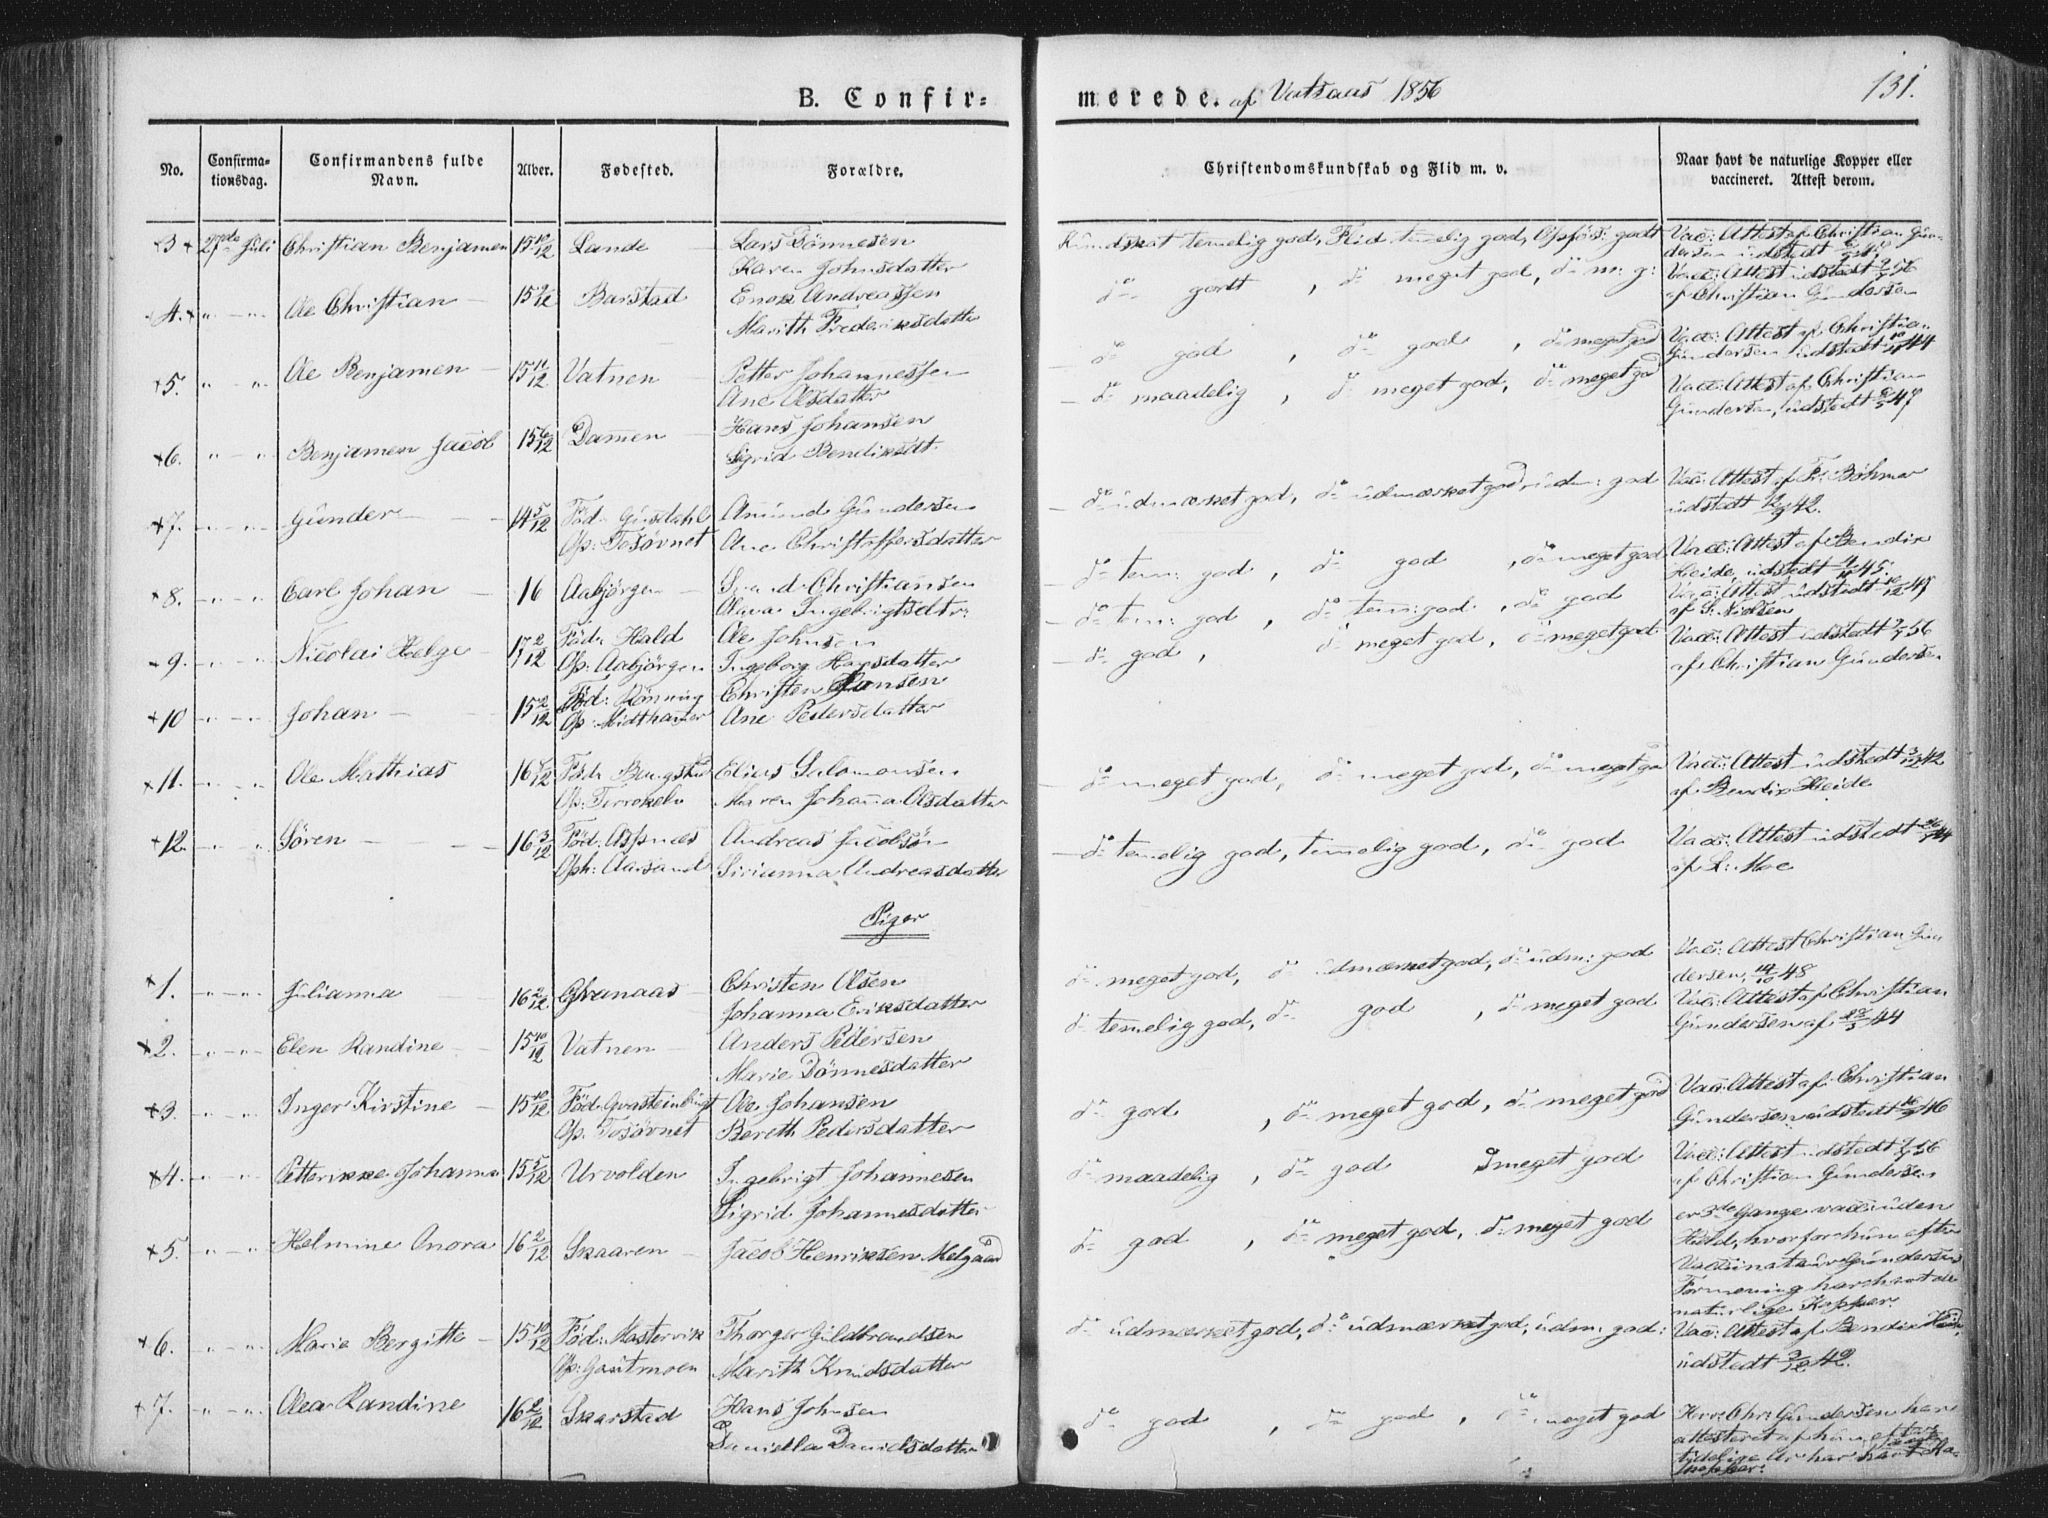 B. Confir-
merede. af Vatsaas 1856
131.
No.
Confirma-
tionsdag.
Confirmandens fulde
Navn.
Alder.
Fødested.
Forældre.
Christendomskundskab og Flid m. v.
Naar havt de naturlige Kopper eller
vaccineret. Attest derom.
3 27de Juli Christian Benjamen 15 10/12 Lande Lars Dönnesen
Karen Johnsdatter
Kundskab temelig god, Flid temelig god, Opförs: godt
Vac: Attest af Christian Gun-
dersen udstedt
4. Ole Christian 15 Barstad Enok Andreassen
Marith Frederiksdatter
do godt, do meget god, do m: g:
Vac: Attest udstedt 56
af Christian Gundersen
5. Ole Benjamen 15 11/12 Vatnen Petter Johannessen
Ane Olsdatter
do god, do god, do meget god
Vac: Attest af Christian
Gundersen udstedt 44
6. Benjamen Jacob 15 Damen Hans Johansen
Sigrid Bendiksdt.
do maadelig, do meget god, do meget god
Vac: Attest af Christian
Gundersen, udstedt 47
7. Gunder 14 5/12 Föd: Gustahl Amund Gundersen
Op: Tosövnet Ane Christoffersdatter
do udmærket god, do udmærket god, udm: god
Vac: Attest af Fr: Böhmer
udstedt 42.
8. Carl Johan 16 Aabjörgen Christiansen
Olava Ingebrigtsdtr:
do tem: god, do god, do meget god
Vac: Attest af Bendix
Heide, udstedt 45.
9. Nicolai Helge 17 2/12 Föd: Hald Ole Johnsen
Op: Aabjörgen Ingeborg Hansdatter
do tem: god, do tem: god, do god
Vac: Attest udstedt 47
af S. Nielsen
10 Johan 15 2/12 Föd: Rönning Christen Hansen
Op: Midthauer Ane Pedersdatter
do god, do meget god, do meget god
Vac: Attest udstedt 56
af Christian Gundersen
11. Ole Mathias 16 Föd: Bangstad Elias Salomonsen
Op: Terrakelv Maren Johanna Olsdatter
do meget god, do meget god, do meget god
Vac: Attest udstedt 3/12 42
af Bendix Heide
12. Sören 16 3/12 Föd: Aspnæs Andreas Jacobsen
Oph: Aarsand Sirianna Andreasdatter
do temelig god, temelig god, do god
Vac: Attest udstedt 44
af L: Moe
Piger
1. Julianna 16 2/12 Granaas Christen Olsen
Johanna Eriksdatter
do meget god, do udmærket god, do udm: god
Vac: Attest Christian Gun
dersen, 48
2. Elen Randine 15 10/12 Vatnen Anders Pedersen
Marie Dönnesdatter
do temelig god, do god, do meget god
Vac: Attest af Christian
Gundersen af 44
3. Inger Kirstine 15 10/12 Föd: Graasteinbugt Ole Johansen
Op: Tosövnet Bereth Pedersdatter
do god, do meget god, do meget god
Vac: Attest af Christian
Gundersen udstedt 46
4. Petterikke Johanna 15 5/12 Urvolden Ingebrigt Johannesen
Sigrid Johannesdatter
do maadelig, do god meget god
Vac: Attest udstedt 56
af Christian Gundersen
5. Helmine Anora 16 2/12 Skaaren Jacob Henriksen Melgaard
do god, do meget god, do meget god
er 3de Gange vac: uden
Held, hvorfor hun efter
Vaccinateur Gundersens
Formening har havt de
naturlige Kopper.
6. Marie Bergitte 15 10/12 Föd: Mastervik Thorger Guldbrandsen
Op: Gautmoen Marith Knudsdatter
do udmærket god, do udmærket god, udm: god:
Vac: Attest af Bendix Heide,
udstedt 3/12 42.
7. Olea Randine 16 2/12 Skarstad Hans Johnsen
Daniella Danielsdatter
do god, do god, do meget god
Herr: Chr: Gundersen have
attesteret af hun efter
har havt
Kopper: